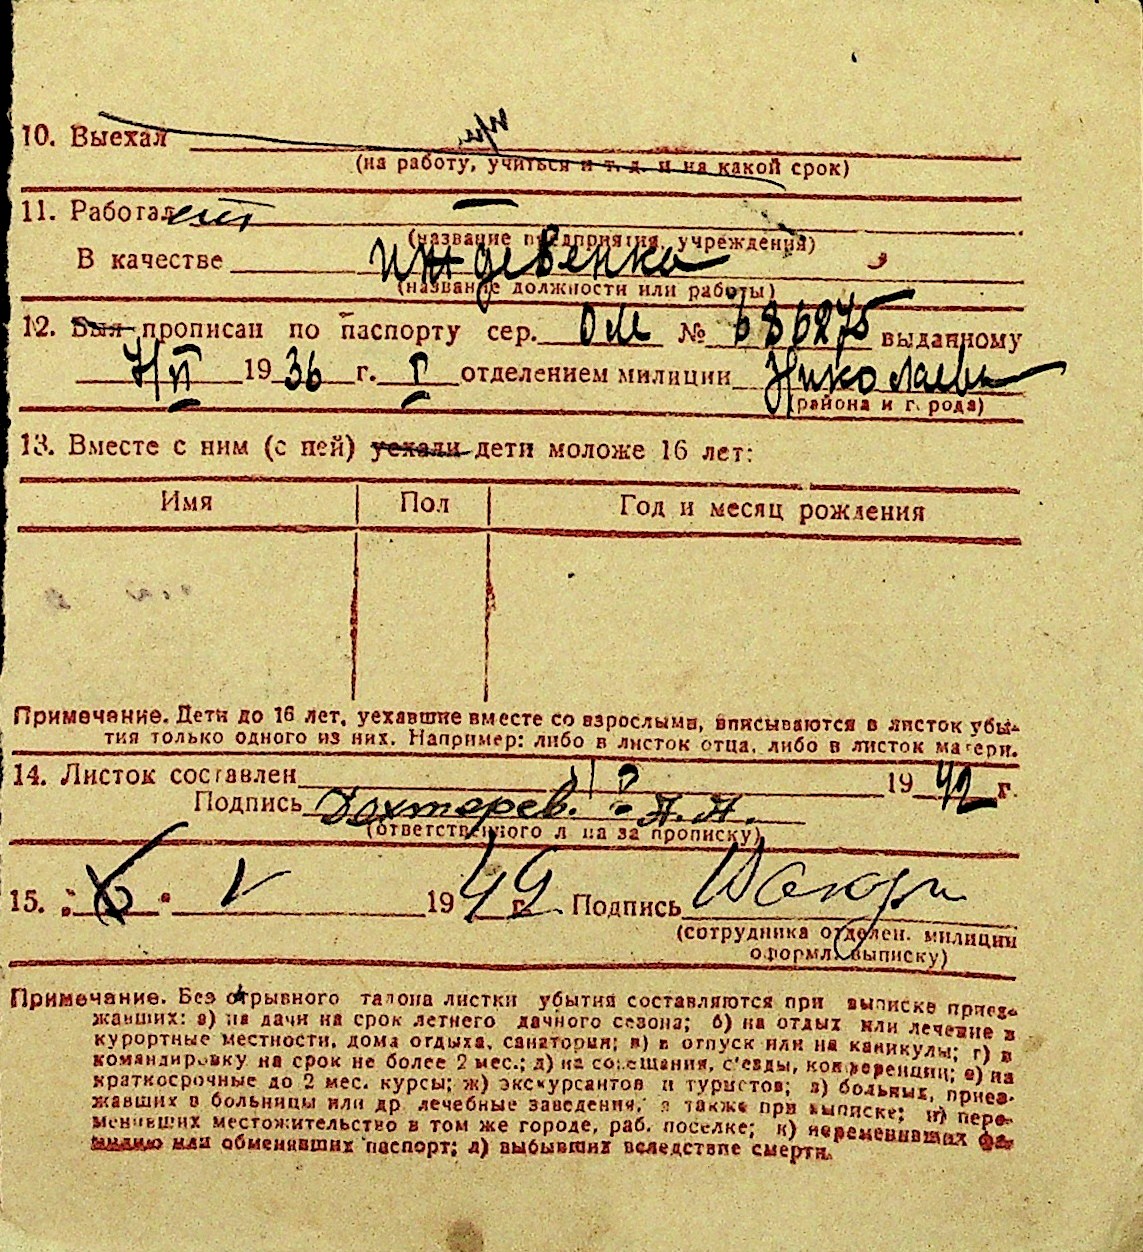 10. Выехал при
(на работу, учиться и т. д. и на какой срок)
11. Работает —
(название предприятия, учреждения)
В качестве иждивенка
(название должности или работы)
12. Был прописан по паспорту сер. ОМ № 686875 выданному
1936 г. I отделением милиции Николаев
(района и города)
13. Вместе с ним (с ней) уехали дети моложе 16 лет:
Имя Пол Год и месяц рождения
Примечание. Дети до 16 лет, уехавшие вместе со взрослыми, вписываются в листок убы-
тия только одного из них. Например: либо в листок отца, либо в листок матери.
14. Листок составлен 1942 г.
Подпись Дохтерев. А. А.
(ответственного лица за прописку)
15. „6“ V 1949 г. Подпись
(сотрудника отделен. милиции
оформл. выписку)
Примечание. Без отрывного талона листки убытия составляются при выписке приез-
жавших: а) на дачи на срок летнего дачного сезона; б) на отдых или лечение в
курортные местности, дома отдыха, санатории; в) в отпуск или на каникулы; г) в
командировку на срок не более 2 мес.; д) на совещания, с'езды, конференции; е) на
краткосрочные до 2 мес. курсы; ж) экскурсантов и туристов; з) больных, приез-
жавших в больницы или др. лечебные заведения, а также при выписке; и) пере-
менивших местожительство в том же городе, раб. поселке; к) переменивших фа-
милию или обменявших паспорт; л) выбывших вследствие смерти.